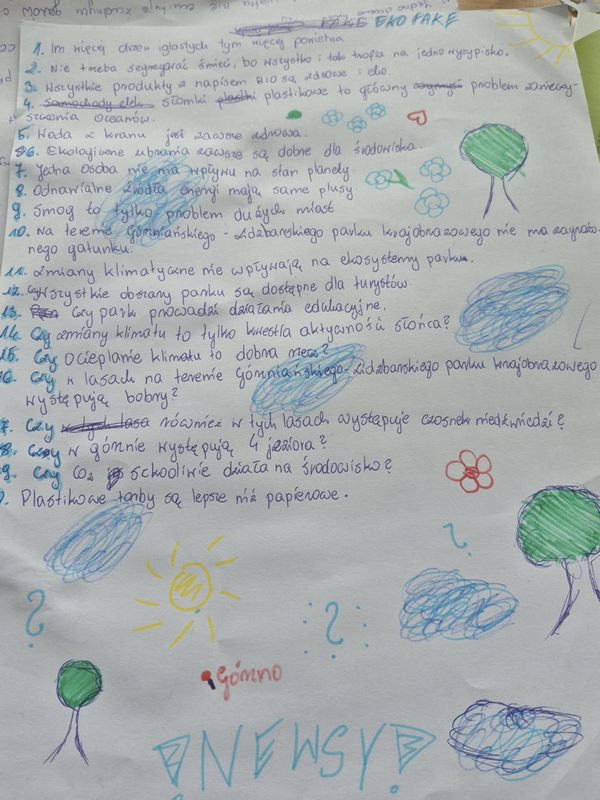 FAKE EKO FAKE
1. Im więcej drzew iglastych tym więcej powietrza
2. Nie trzeba segregować śmieci, bo wszystko i tak trafia na jedno wysypisko.
3. Wszystkie produkty z napisem BIO są zdrowe i eko.
4. Samochody elek. słomki plastikowe to główny problem zanieczy-
szczania oceanów.
5. Woda z kranu jest zawsze zdrowa.
6. Ekologiczne ubrania zawsze są dobre dla środowiska.
7. Jedna osoba nie ma wpływu na stan planety.
8. Odnawialne źródła energi mają same plusy
9. Smog to tylko problem dużych miast
10. Na terenie Górzniańskiego-Lidzbarskiego parku krajobrazowego nie ma zagrożo-
nego gatunku.
11. Zmiany klimatyczne nie wpływają na ekosystemy parku.
12. Wszystkie obszary parku są dostępne dla turystów
13. Czy park prowadzi działania edukacyjne.
14. Czy zmiany klimatu to tylko kwestia aktywności słońca?
15. Czy ocieplanie klimatu to dobra rzecz?
6. Czy w lasach na terenie Górzniańskiego-Lidzbarskiego parku krajobrazowego
występują bobry?
7. Czy również w tych lasach występuje czosnek niedźwiedzi?
8. Czy w górznie występują 4 jeziora?
9. Czy CO2 szkodliwie działa na środowisko?
Plastikowe torby są lepsze niż papierowe.
?
?
?
Górzno
NEWSY